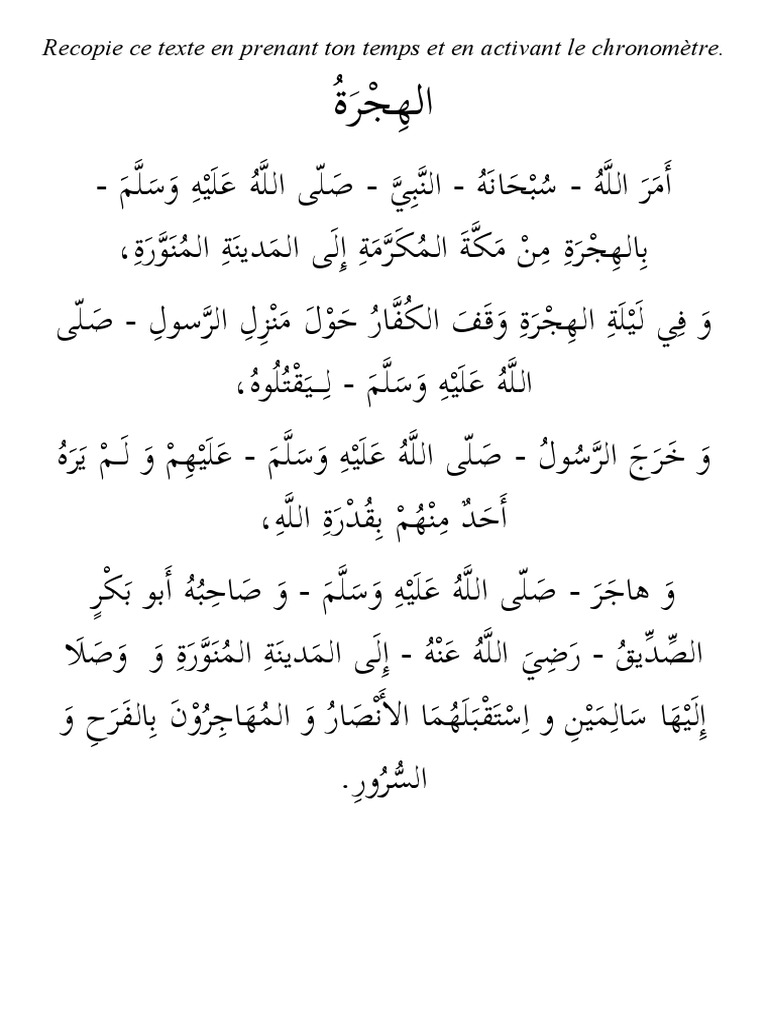 Recopie ce texte en prenant ton temps et en activant le chronomètre.
الهِجْرَةُ
أَمَرَ اللَّهُ - سُبْحَانَهُ - النَّبِيَّ - صَلّى اللَّهُ عَلَيْهِ وَسَلَّمَ -
بِالهِجْرَةِ مِنْ مَكَّةَ المُكَرَّمَةِ إِلَى المَدينَةِ المُنَوَّرَةِ،
وَ فِي لَيْلَةِ الهِجْرَةِ وَقَفَ الكُفَّارُ حَوْلَ مَنْزِلِ الرَّسولِ - صَلّى
اللَّهُ عَلَيْهِ وَسَلَّمَ - لِـيَقْتُلُوهُ،
وَ خَرَجَ الرَّسُولُ - صَلّى اللَّهُ عَلَيْهِ وَسَلَّمَ - عَلَيْهِمْ وَ لَـمْ يَرَهُ
أَحَدٌ مِنْهُمْ بِقُدْرَةِ اللَّهِ،
وَ هاجَرَ - صَلّى اللَّهُ عَلَيْهِ وَسَلَّمَ - وَ صَاحِبُهُ أَبو بَكْرٍ
الصِّدِّيقُ - رَضِيَ اللَّهُ عَنْهُ - إِلَى المَدينَةِ المُنَوَّرَةِ وَ وَصَلَا
إِلَيْهَا سَالِمَيْنِ و اِسْتَقْبَلَهُمَا الأَنْصَارُ وَ المُهَاجِرُوْنَ بِالفَرَحِ وَ
السُّرُورِ.